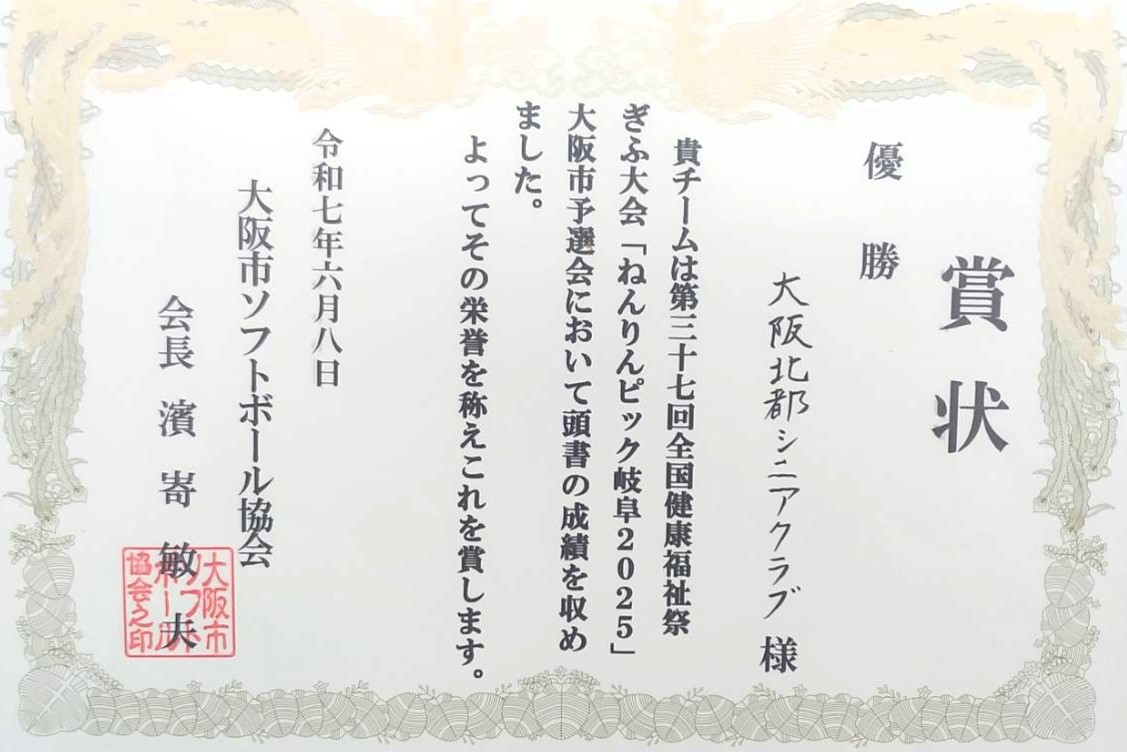 賞状
優勝
大阪北都シニアクラブ 様
貴チームは第三十七回全国健康福祉祭
ぎふ大会「ねんりんピック岐阜2025」
大阪市予選会において頭書の成績を収め
ました。
よってその栄誉を称えこれを賞します。
令和七年六月八日
大阪市ソフトボール協会
会長 濱嵜敏夫
大阪市
ソフト
ボール
協会之印